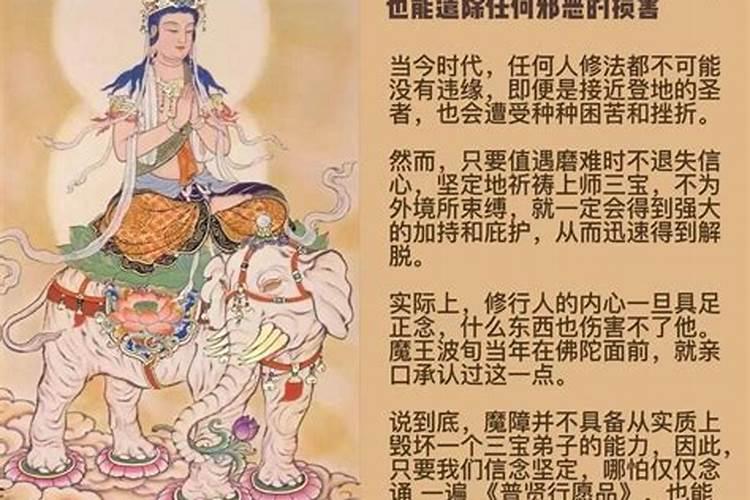 也能遣除任何邪恶的损害
当今时代，任何人修法都不可能
没有违缘，即便是接近登地的圣
者，也会遭受种种困苦和挫折。
然而，只要值遇磨难时不退失信
心，坚定地祈祷上师三宝，不为
外境所束缚，就一定会得到强大
的加持和庇护，从而迅速得到解
脱。
实际上，修行人的内心一旦具足
正念，什么东西也伤害不了他。
魔王波旬当年在佛陀面前，就亲
口承认过这一点。
说到底，魔障并不具备从实质上
毁坏一个三宝弟子的能力，因此，
只要我们信念坚定，哪怕仅仅念
诵一遍《普贤行愿品》，也能